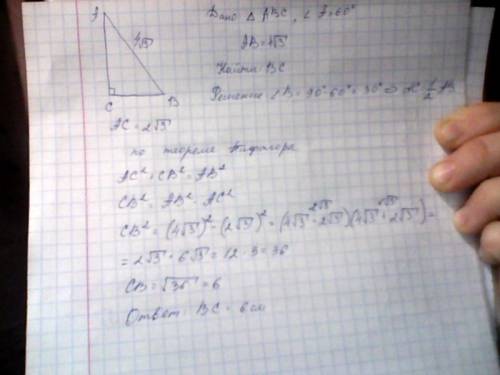 A
4√3
C
B
Дано △ ABC, ∠ A=60°
AB=4√3
Найти: BC
Решение: ∠B= 90°-60°= 30° ⇒ AC=1/2 AB
AC = 2√3
по теореме Пифагора
AC²+CB²=AB²
CB²=AB²-AC²
CB²=(4√3)²-(2√3)²=(4√3-2√3)(4√3+2√3)=
=2√3·6√3=12·3=36
CB=√36=6
Ответ: BC=6см